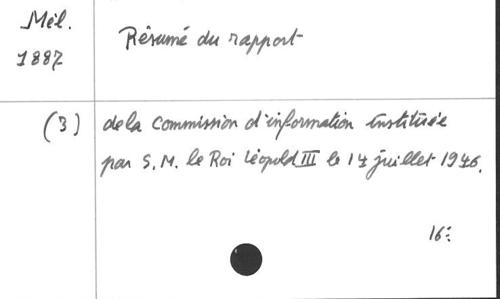 Mél.
1887
Résumé du rapport
(3) de la Commission d'information instituée
par S.M. le Roi Léopold III le 14 juillet 1946.
16: